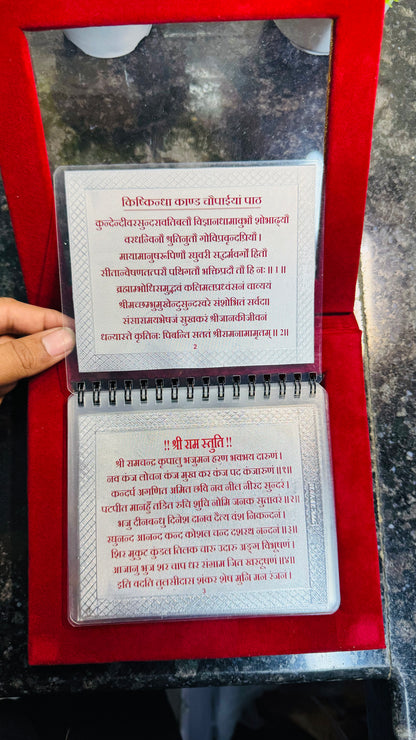 किष्किन्धा काण्ड चौपाईयां पाठ
कुन्देन्दीवरसुन्दरावतिबलौ विज्ञानधामावुभौ शोभाढ्यौ
वरधन्विनौ श्रुतिनुतौ गोविप्रवृन्दप्रियौ ।
मायामानुषरूपिणौ रघुवरौ सद्धर्मवर्मौ हितौ
सीतान्वेषणतत्परौ पथिगतौ भक्तिप्रदौ तौ हि नः ॥ 1 ॥
ब्रह्माम्भोधिसमुद्भवं कलिमलप्रध्वंसनं चाव्ययं
श्रीमच्छम्भुमुखेन्दुसुन्दरवरे संशोभितं सर्वदा।
संसारामयभेषजं सुखकरं श्रीजानकीजीवनं
धन्यास्ते कृतिनः पिबन्ति सततं श्रीरामनामामृतम् ॥ 2॥
2
!! श्री राम स्तुति !!
श्री रामचन्द्र कृपालु भजुमन हरण भवभय दारुणं ।
नव कंज लोचन कंज मुख कर कंज पद कंजारुणं ॥१॥
कन्दर्प अगणित अमित छवि नव नील नीरद सुन्दरं ।
पटपीत मानहुँ तडित रुचि शुचि नोमि जनक सुतावरं ॥२॥
भजु दीनबन्धु दिनेश दानव दैत्य वंश निकन्दनं ।
रघुनन्द आनन्द कन्द कोशल चन्द दशरथ नन्दनं ॥३॥
शिर मुकुट कुंडल तिलक चारु उदारु अङ्ग विभूषणं ।
आजानु भुज शर चाप धर संग्राम जित खरदूषणं ॥४॥
इति वदति तुलसीदास शंकर शेष मुनि मन रंजनं ।
3